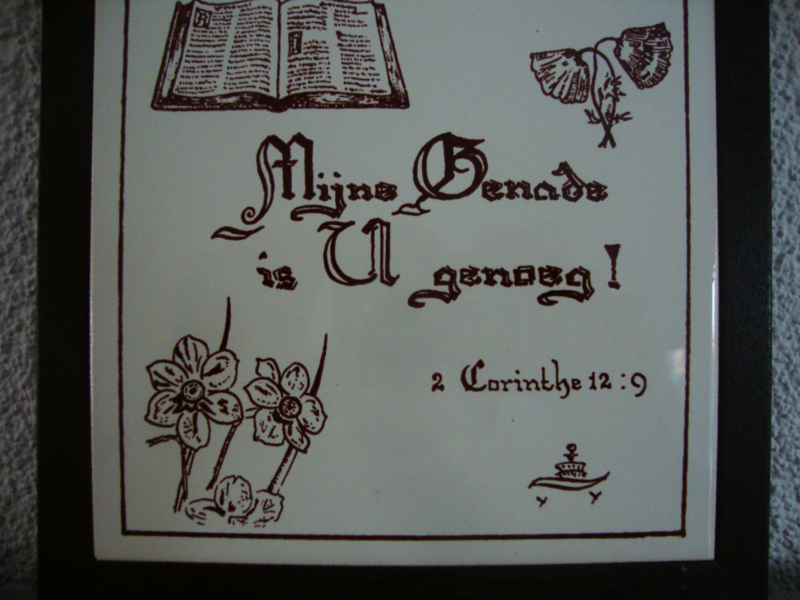 Mijne Genade
is U genoeg!
2 Corinthe 12:9